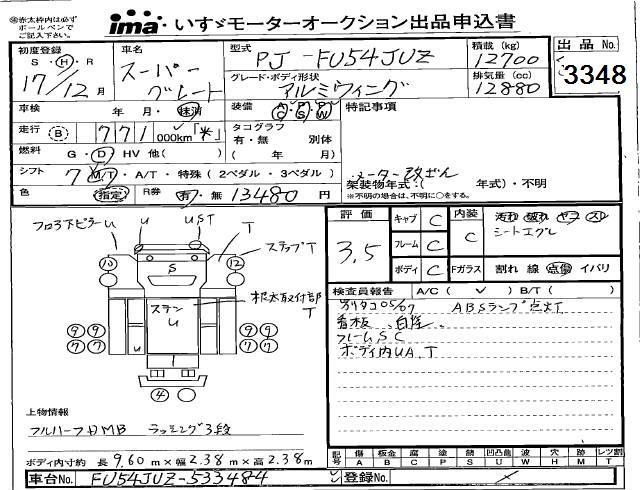 ※赤太枠内は必ず
ボールペンで
ご記入下さい。
ima・いすゞモーターオークション出品申込書
初度登録 S・H・R 17/12月
車名 スーパーグレート
型式 PJ-FU54JUZ
積載(kg) 12700
出品No. 3348
グレード・ボディ形状 アルミウイング
排気量(cc) 12880
車検 年・月・抹消
装備 AC PS PW
特記事項
走行 B 771000km「米」
タコグラフ 有・無 別体
( 年 月)
燃料 G・D HV 他( )
シフト 7 M/T・A/T・特殊(2ペダル・3ペダル)
メーター改ざん
架装物年式:( 年式)・不明
※不明の場合は、不明に○をする。
色 指定 R券 有・無 13480円
フロア下ピラーu u UST T
ステップT
10 12
S
ステン
u
根太取付部
T
9 9 9 9
7 7 7 7
u
4
評価 3.5
キャブ C
フレーム C
ボディ C
内装 C
汚れ 破れ ヤコ スレ
シートエグレ
Fガラス 割れ 線 点傷 イバリ
検査員報告 A/C( ✓ ) B/T( )
別タコ05/07 ABSランプ点灯
看板 自医
フレームSC
ボディ内UA、T
上物情報
フルハーフ日MB ラッシング3段
ボディ内寸約 長9.60m×幅2.38m×高2.38m
記号 傷 板金 腐 塗 錆 凹凸凹 波 穴 跡 レツ割
A B C P S U W H M T
車台No. FU54JUZ-533484
登録No.